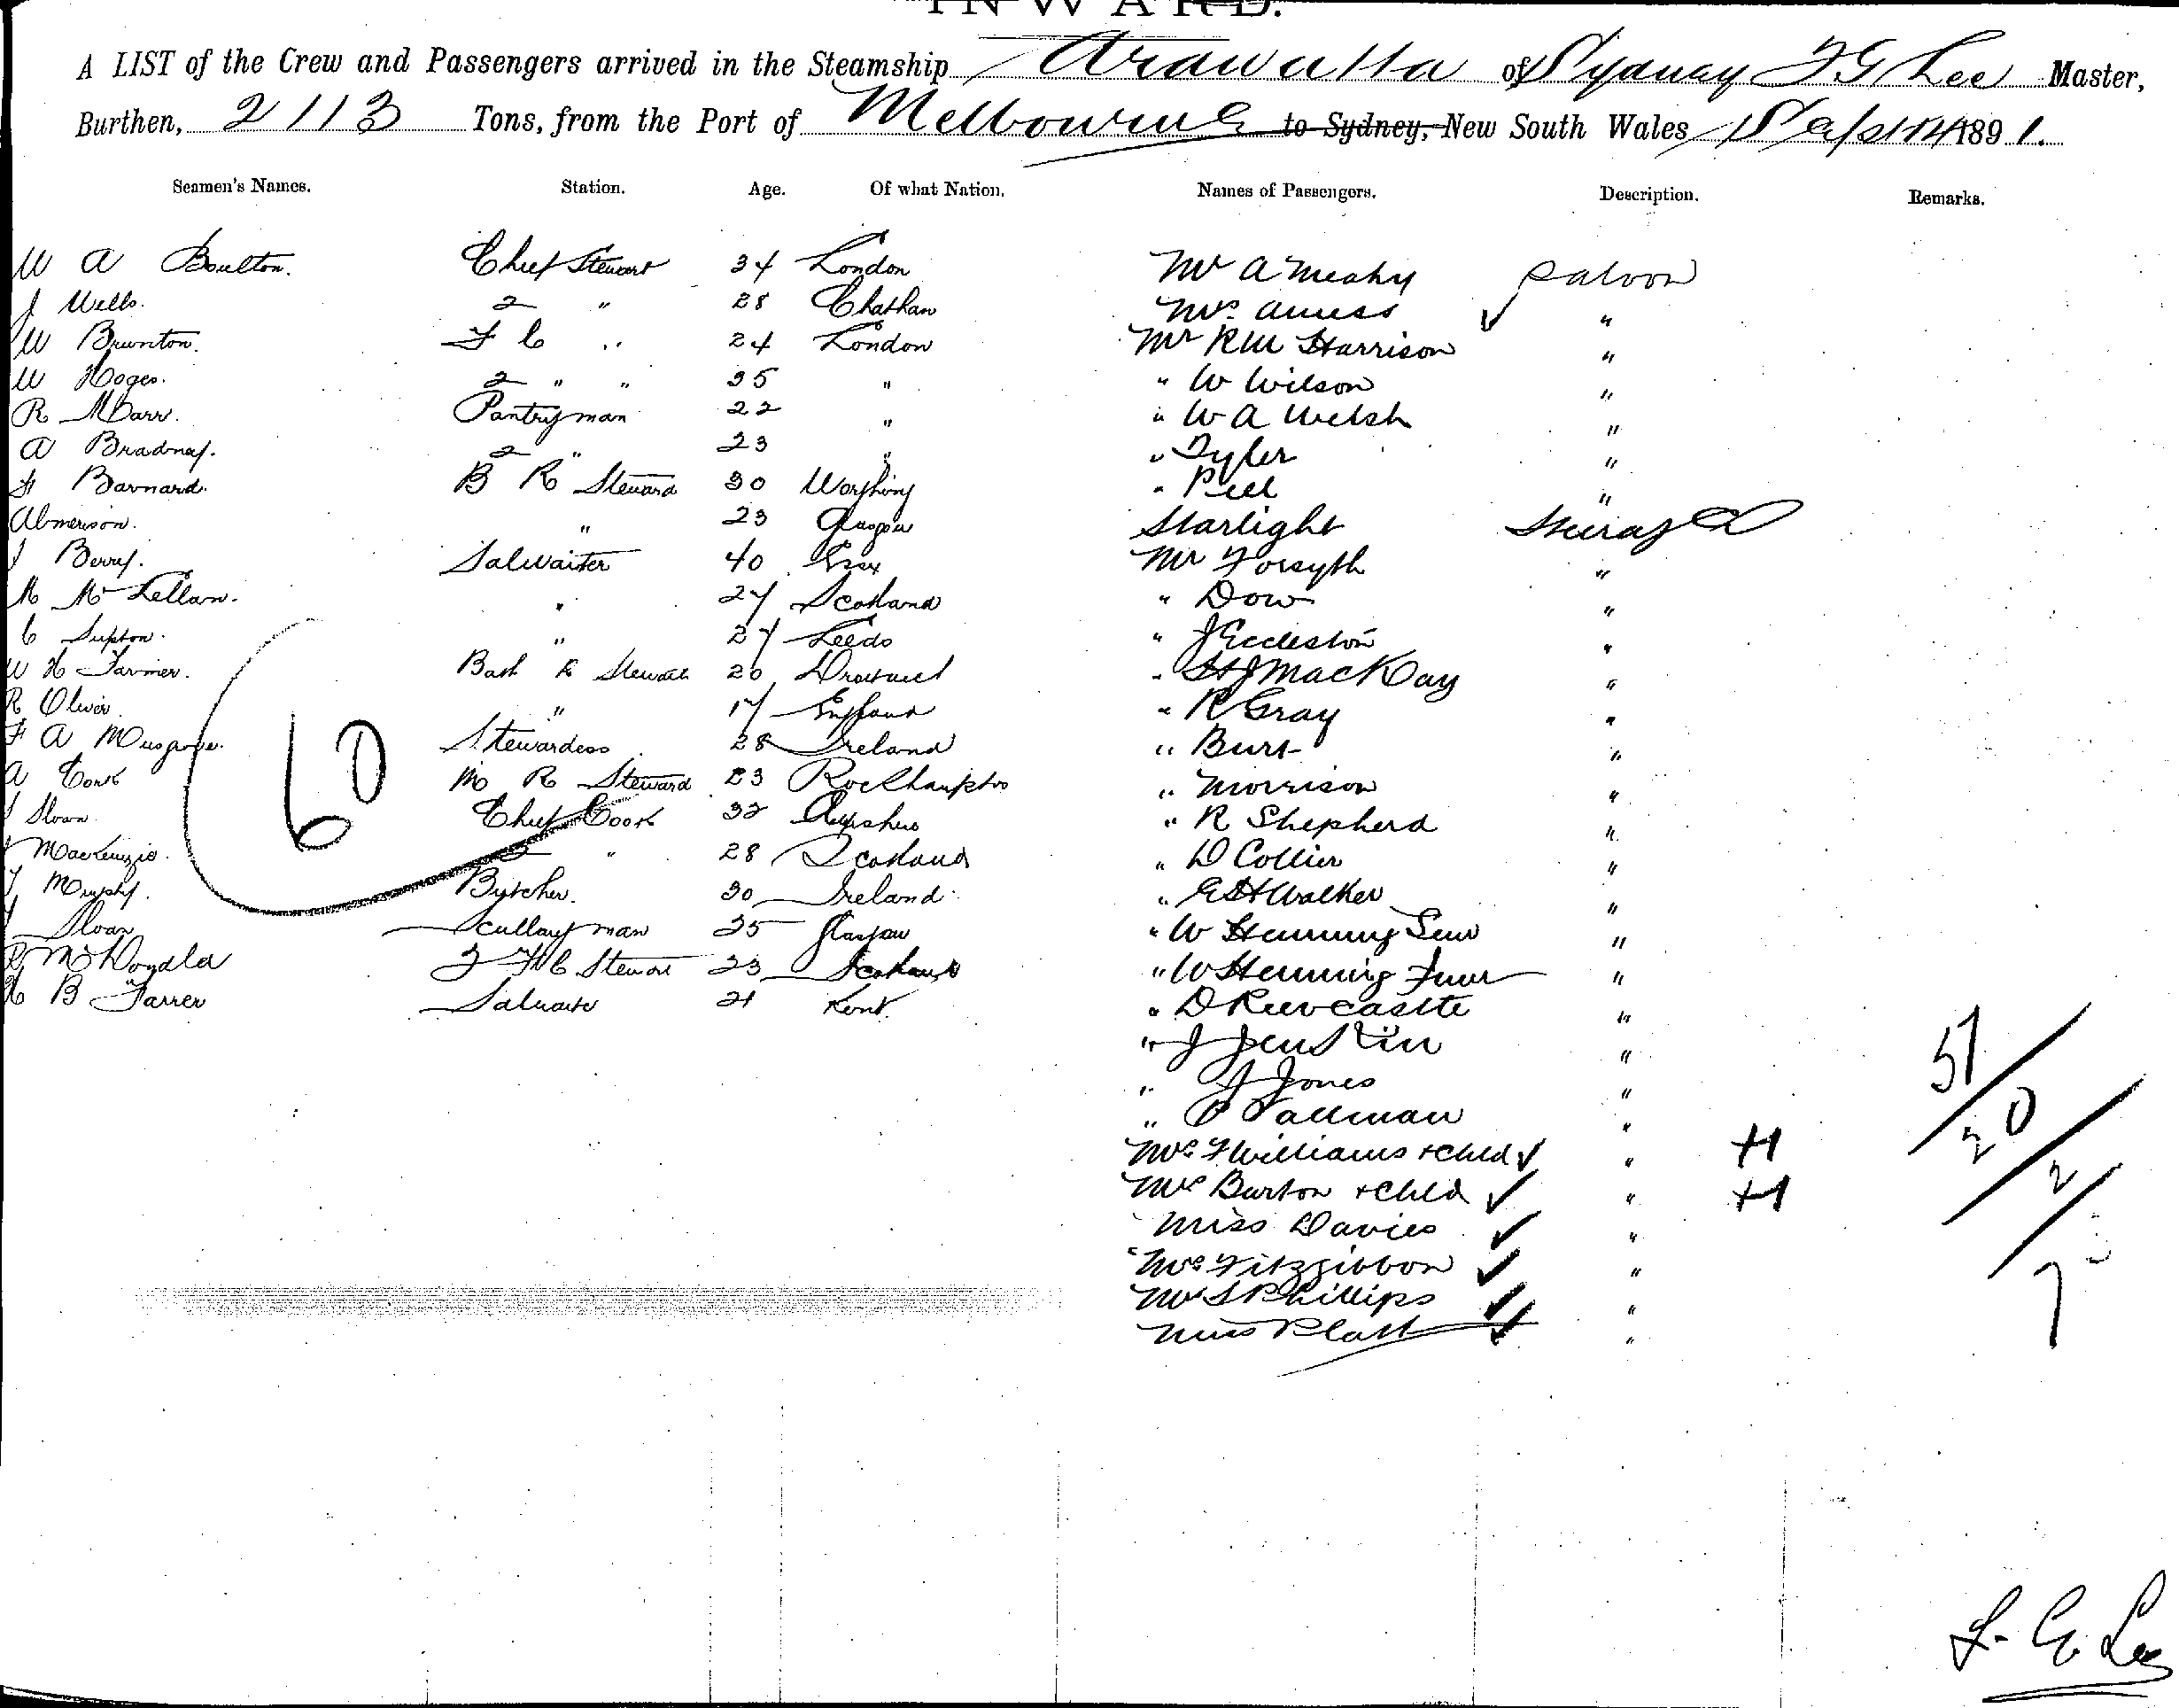 INWARD.
A LIST of the Crew and Passengers arrived in the Steamship Arawatta of Sydney F G Lee Master,
Burthen, 2113 Tons, from the Port of Melbourne to Sydney, New South Wales 1891.
Seamen's Names. Station. Age. Of what Nation. Names of Passengers. Description. Remarks.
W A Boulton. Chief Steward 34 London Mr A Meahy Saloon
J Wells. 2 " 28 Chatham Mrs Amess ✓ "
W Brunton. F C " 24 London Mr R M Harrison "
W Hoges. 2 " " 35 " " W Wilson "
R Barr. Pantryman 22 " " W A Welsh "
A Bradney. 2 " 23 " " Tyler "
F Barnard. B R Steward 30 Worthing " Peel "
" 23 Glasgow Starlight Steerage
J Berry. Salwaiter 40 Essex Mr Forsyth "
M McLellan. " 27 Scotland " Dow "
C " 27 Leeds " J Eccleston "
W H Farmer. Bath R Steward 20 " H J MacKay "
R Oliver. " 17 England " R Gray "
F A Musgrove. Stewardess 28 Ireland " Burt "
A Cork M R Steward 23 Rockhampton " Morrison "
J Sloan. Chief Cook 32 Ayrshire " R Shepherd "
MacKenzie. 2 " 28 Scotland " D Collier "
J Murphy. Butcher. 30 Ireland. " E H Walker "
Sloan Scullaryman 25 Glasgow " W Hemming Senr "
R McDonald 2 F C Steward 23 Scotland " W Hemming Junr "
H B Farrer Salwaiter 21 Kent. " D Reevcastle "
" J Jenkin "
" J Jones "
" P Tallman "
Mrs F Williams + Child ✓ " H
Mrs Burton + Child ✓ " H
Miss Davies ✓ "
Mrs Fitzgibbon ✓ "
Mrs S Phillips ✓ "
Miss Platt ✓ "
60
51/20/2/7
F. G. Lee